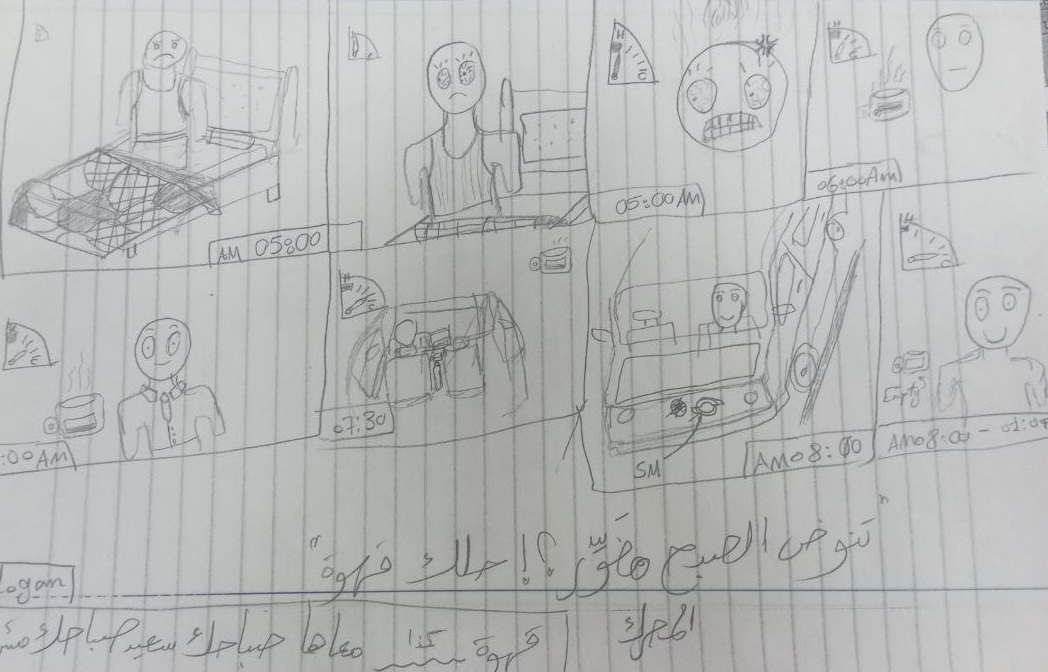 AM 05:00
05:00 AM
06:00 Am
:00 AM
07:30
SM
AM 08:00
Empty
AM 08:00 - 01:0
"تنوض الصبح ؟! حلك قهوة"
logan
قهوة معاها صباحك سعيد صباحك